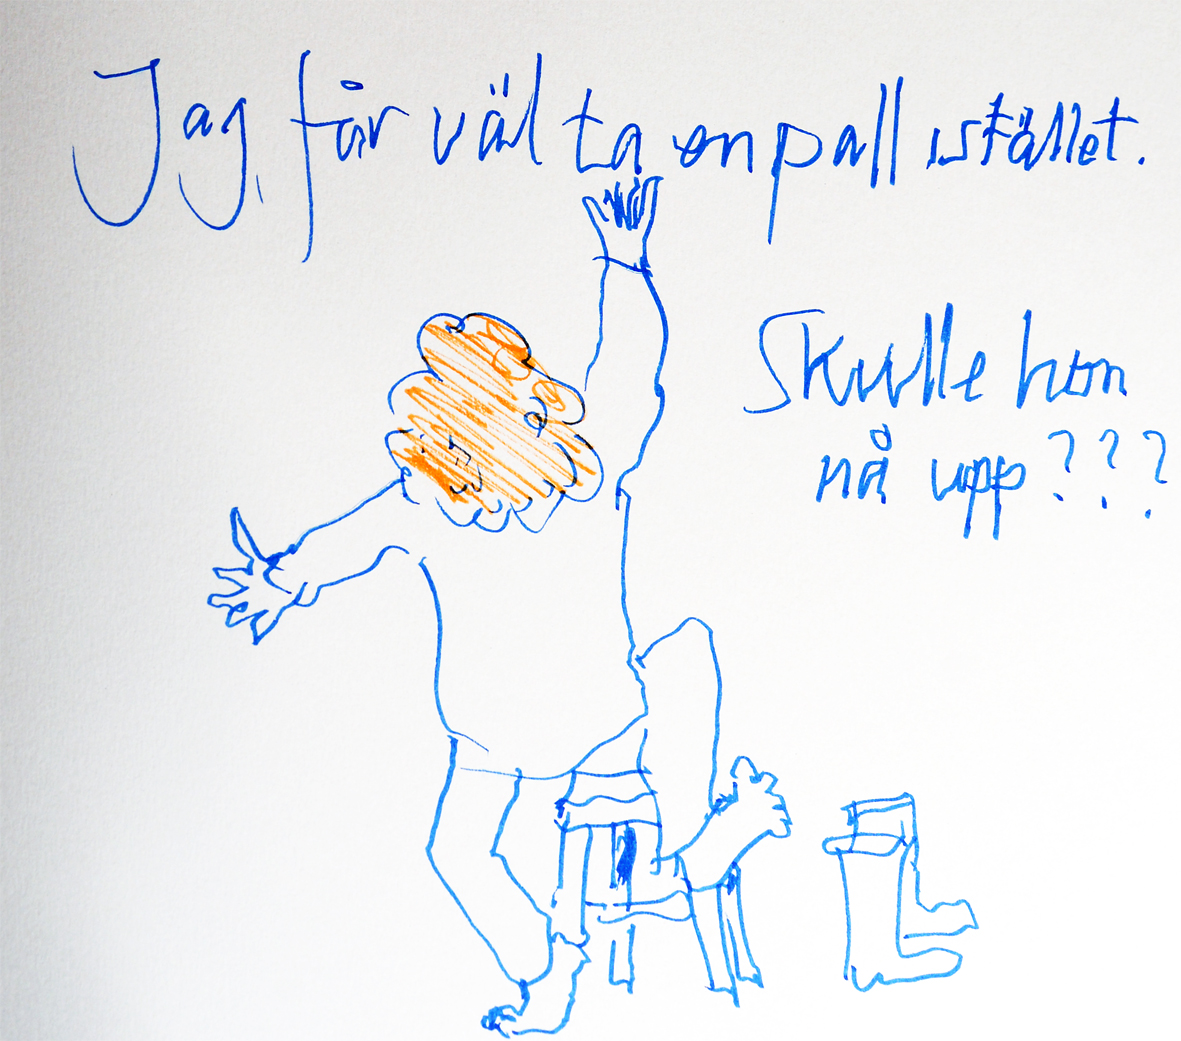 Jag får väl ta en pall istället.
Skulle hon
nå upp ???